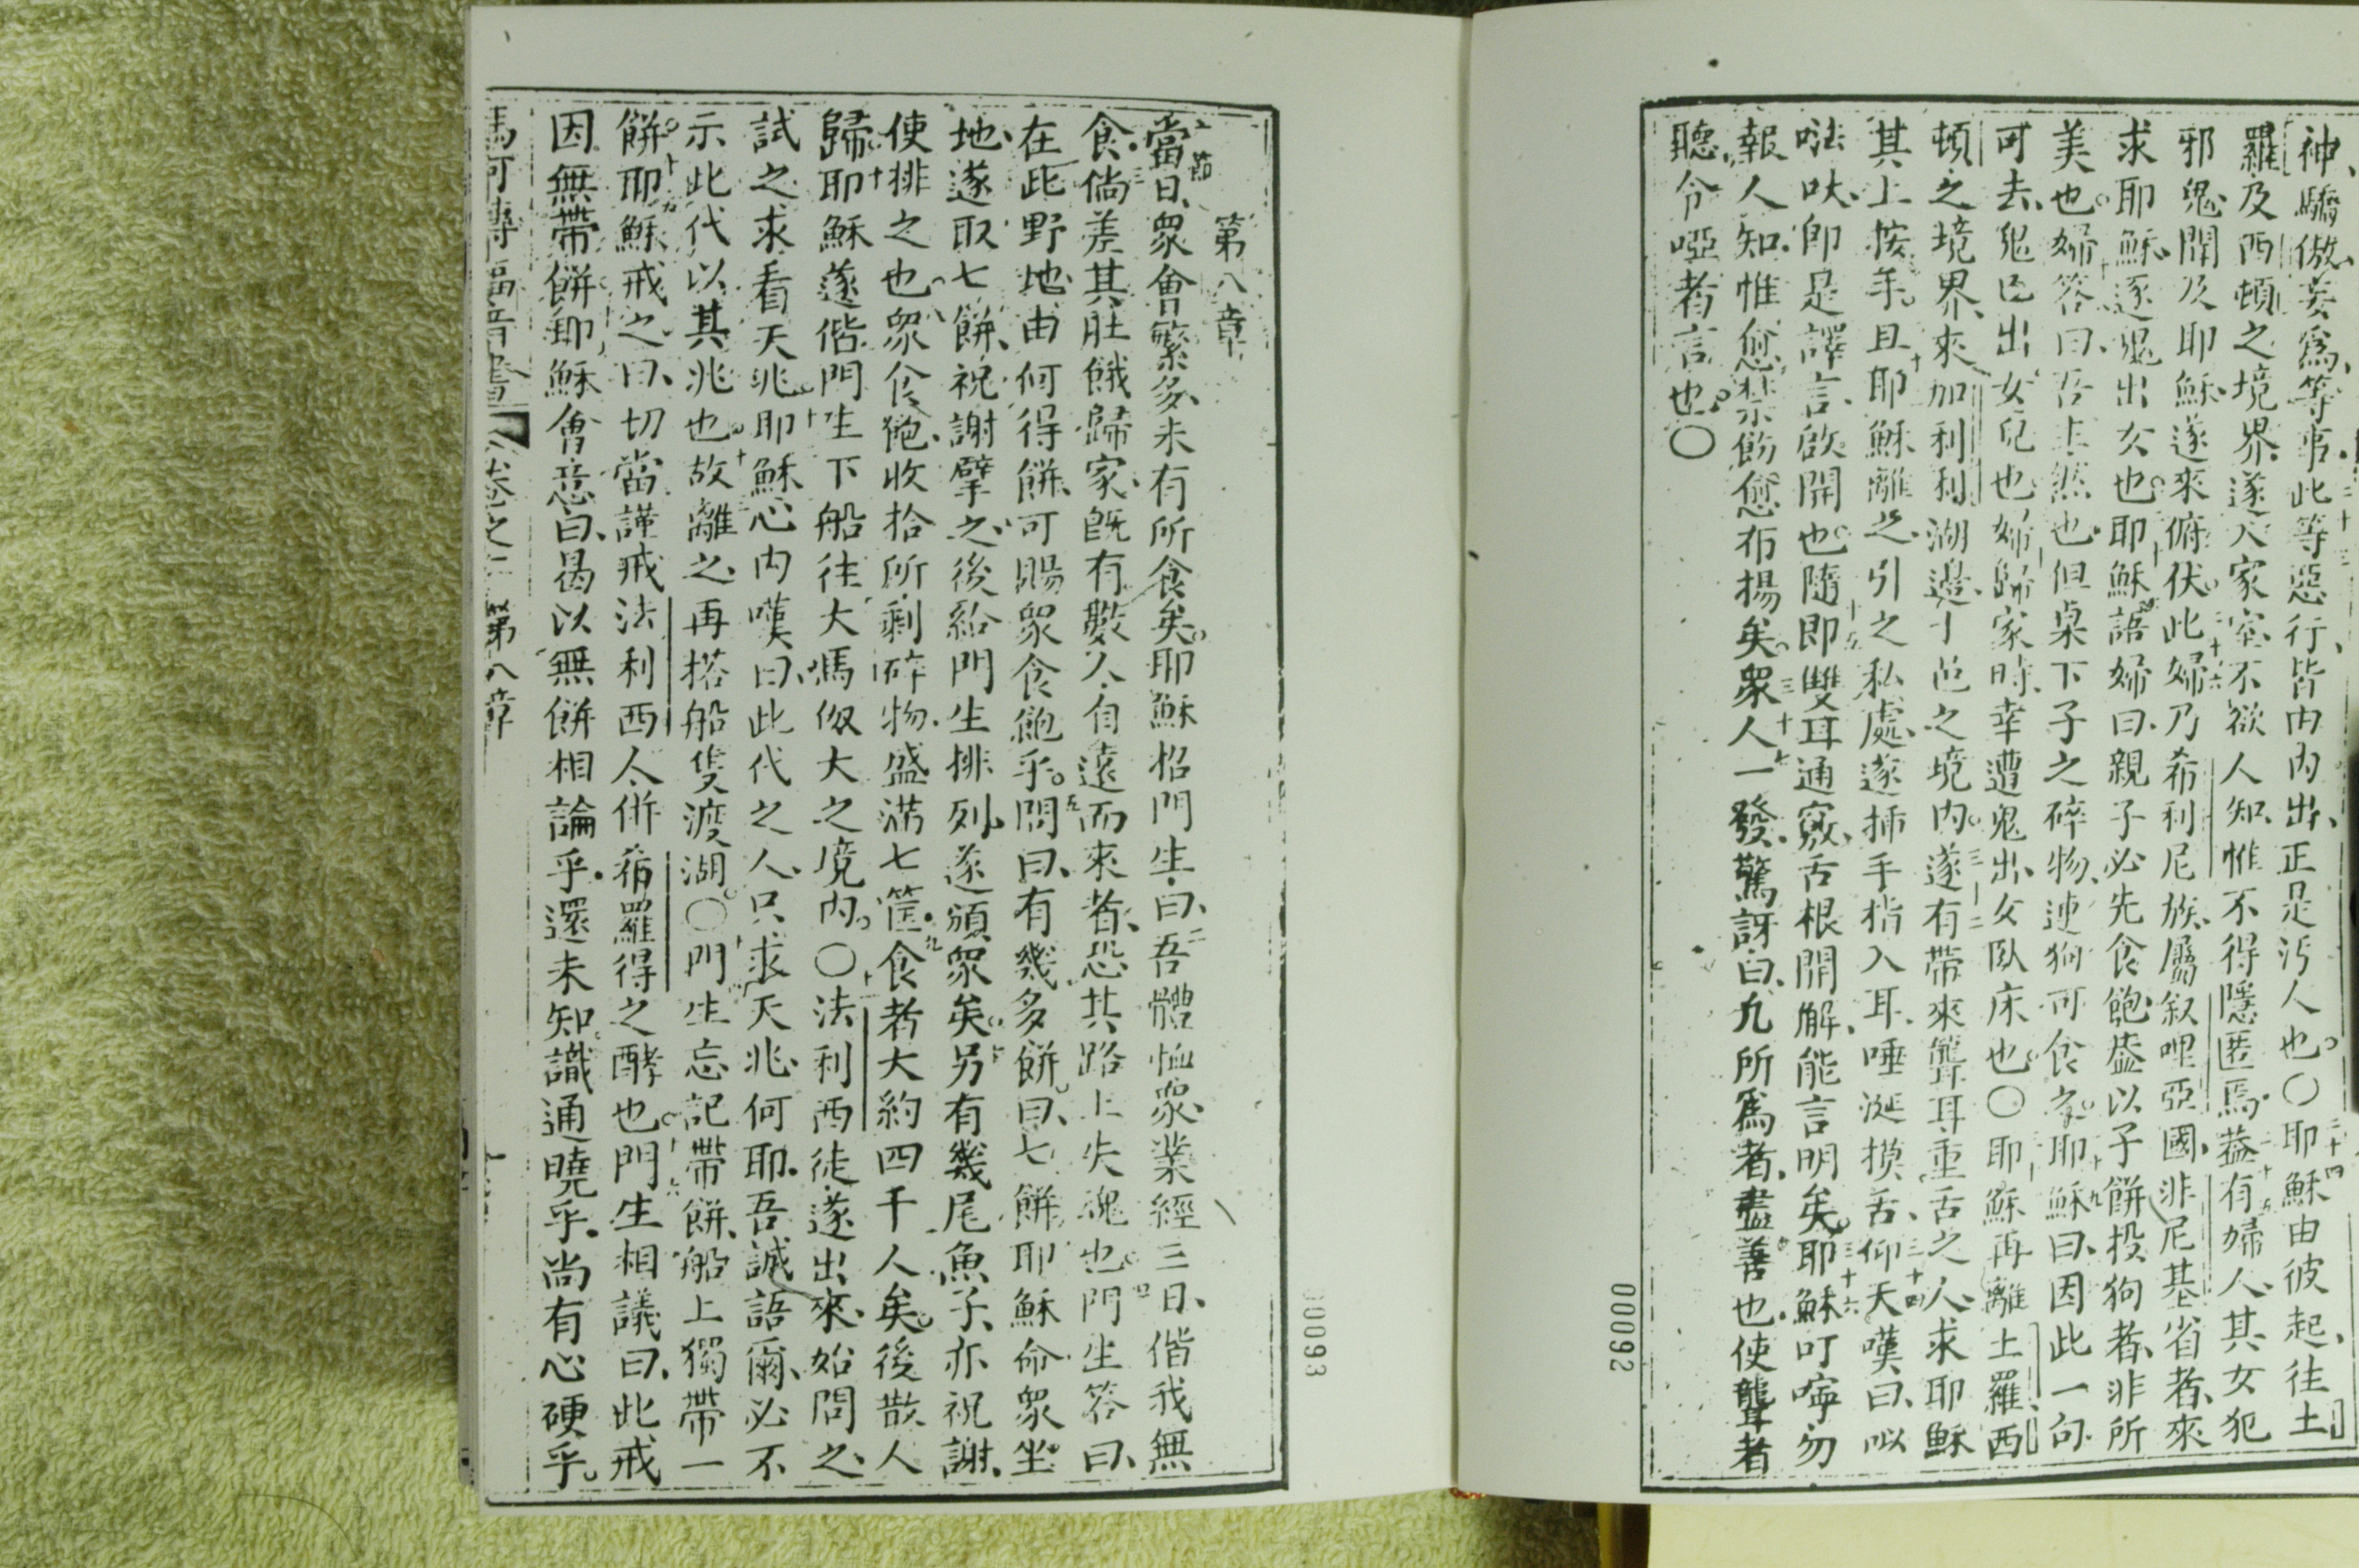 神驕傲妄爲等事此等惡行皆由內出正是汚人也〇耶穌由彼起往土
羅及西頓之境界遂入家室不欲人知惟不得隱匿焉蓋有婦人其女犯
邪鬼聞及耶穌遂來俯伏此婦乃希利尼族屬叙哩亞國非尼基省者來
求耶穌逐鬼出女也耶穌語婦曰親子必先食飽蓋以子餅投狗者非所
美也婦答曰吾主然也但桌下子之碎物連狗可食之耶穌曰因此一句
可去鬼已出女兒也婦歸家時幸遭鬼出女臥床也〇耶穌再離土羅西
頓之境界來加利利湖邊十邑之境內遂有帶來聾耳重舌之人求耶穌
其上按手且耶穌離之引之私處遂插手指入耳唾涎摸舌仰天嘆曰以
㖫吠即是譯言啟開也隨即雙耳通竅舌根開解能言明矣耶穌叮嚀勿
報人知惟愈禁飭愈布揚矣衆人一發驚訝曰凡所爲者盡善也使聾者
聽令啞者言也〇
00092
第八章
當日衆會繁多未有所食矣耶穌招門生曰吾體恤衆業經三日偕我無
食倘差其肚餓歸家旣有數人自遠而來者恐其路上失魂也門生答曰
在此野地由何得餅可賜衆食飽乎問曰有幾多餅曰七餅耶穌命衆坐
地遂取七餅祝謝擘之後給門生排列遂頒衆矣另有幾尾魚子亦祝謝
使排之也衆食飽收拾所剩碎物盛滿七筐食者大約四千人矣後散人
歸耶穌遂偕門生下船往大馬伋大之境內〇法利西徒遂出來始問之
試之求看天兆耶穌心內嘆曰此代之人只求天兆何耶吾誠語爾必不
示此代以其兆也故離之再搭船隻渡湖〇門生忘記帶餅船上獨帶一
餅耶穌戒之曰切當謹戒法利西人併希羅得之酵也門生相議曰此戒
因無帶餅耶穌會意曰曷以無餅相論乎還未知識通曉乎尚有心硬乎
馬可傳福音書 卷之二 第八章
0093